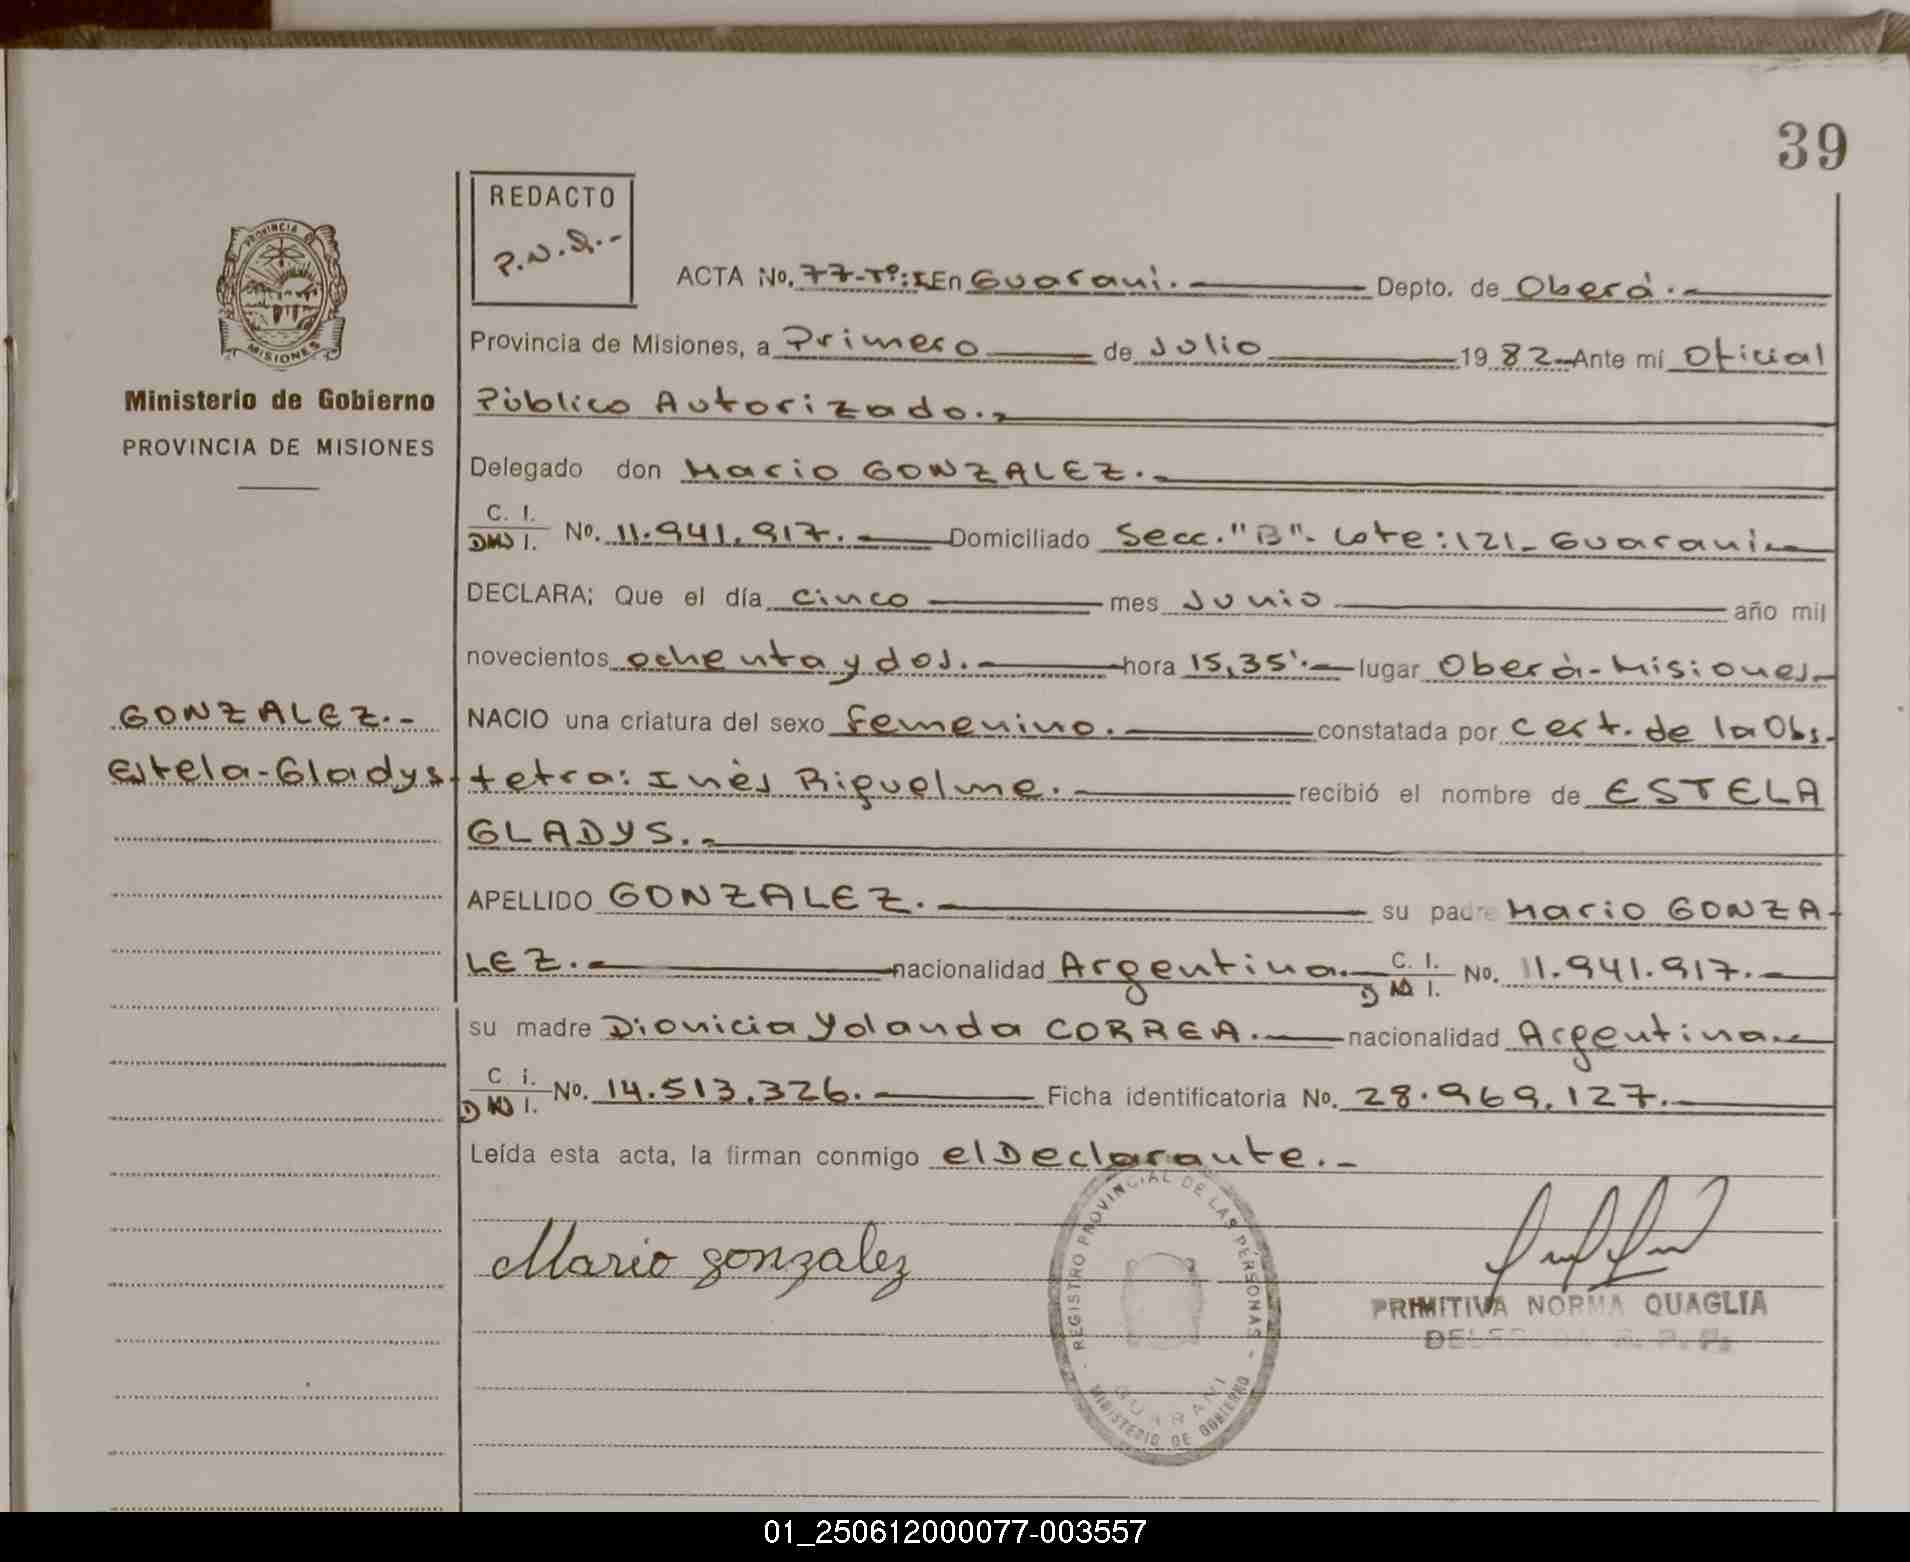 39
REDACTO
P.N.Q.-
PROVINCIA DE
MISIONES
Ministerio de Gobierno
PROVINCIA DE MISIONES
ACTA No. 77-Tº:I En Guarani.- Depto. de Oberá.-
Provincia de Misiones, a Primero de Julio 1982- Ante mí Oficial
Público Autorizado.-
Delegado don Mario GONZALEZ.-
C. I.
DNI I. No. 11.941.917.- Domiciliado Secc."B"- Lote:121- Guarani.-
DECLARA; Que el día cinco mes Junio año mil
novecientos ochenta y dos.- hora 15,35'.- lugar Oberá-Misiones.-
GONZALEZ.-
NACIO una criatura del sexo femenino.- constatada por cert. de la Obs-
Estela-Gladys
tetra: Inés Riquelme.- recibió el nombre de ESTELA
GLADYS.-
APELLIDO GONZALEZ.- su padre Mario GONZA-
LEZ.- nacionalidad Argentina.- C. I.
D N I. No. 11.941.917.-
su madre Dionicia Yolanda CORREA.- nacionalidad Argentina.-
C i.
D N I. No. 14.513.326.- Ficha identificatoria No. 28.969.127.-
Leída esta acta, la firman conmigo el Declarante.-
Mario gonzalez
REGISTRO PROVINCIAL DE LAS PERSONAS
GUARANI
MINISTERIO DE GOBIERNO
PRIMITIVA NORMA QUAGLIA
01_250612000077-003557